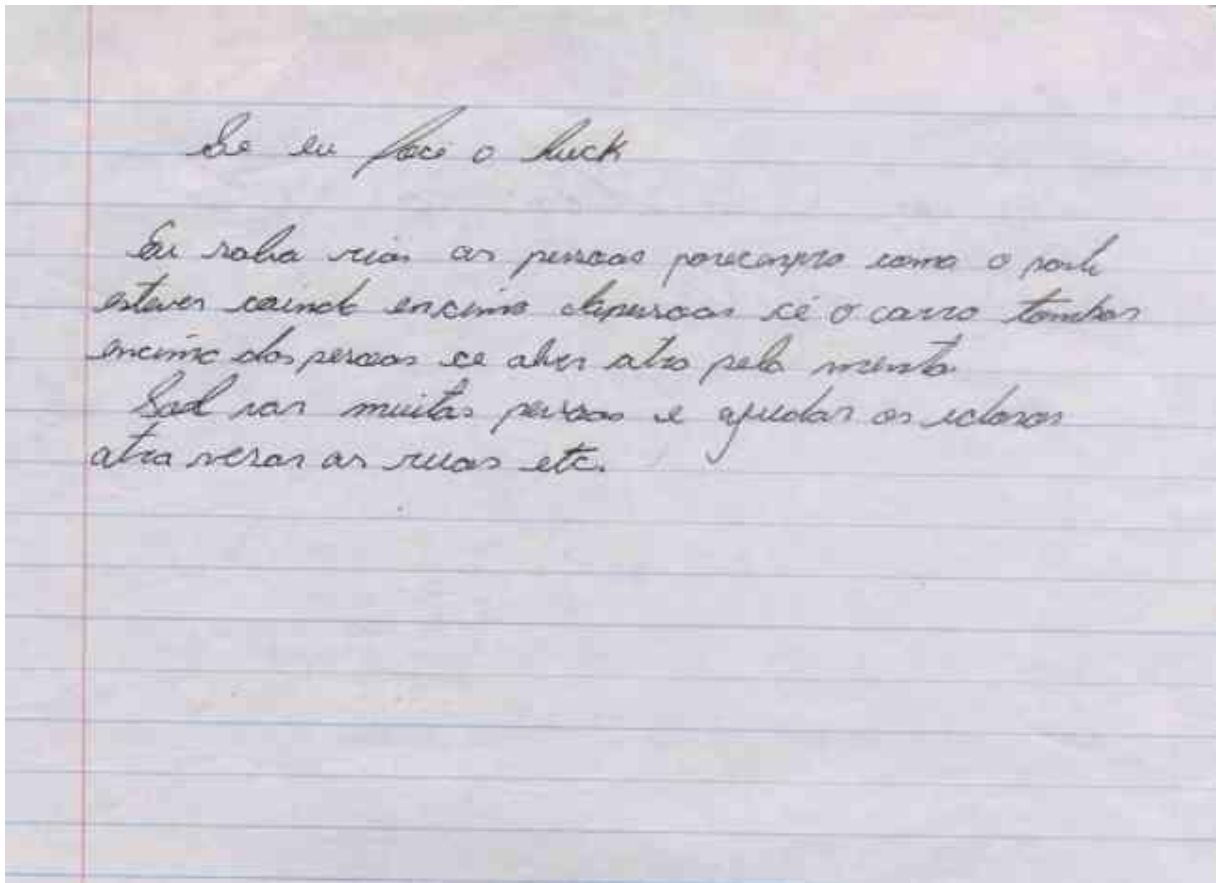 Se eu foce o huck
Eu salva rias as pesoas porecenpro como o poste
estever caindo encima depesoas cé o carro tombar
encima das pesoas ce aver atropela mento
Sal var muitas pesoas e ajudar os idosos
atra vesar as ruas etc.